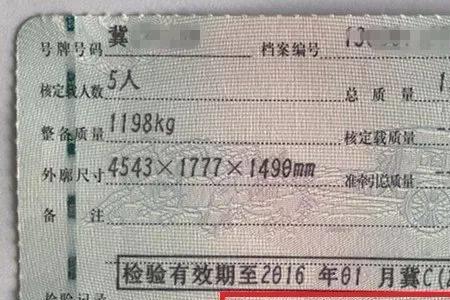 号牌号码 冀 档案编号
核定载人数 5人 总质量 1
整备质量 1198kg 核定载质量 --
外廓尺寸 4543×1777×1490mm 准牵引总质量 --
备注
检验有效期至2016 年01 月冀C(
检验记录